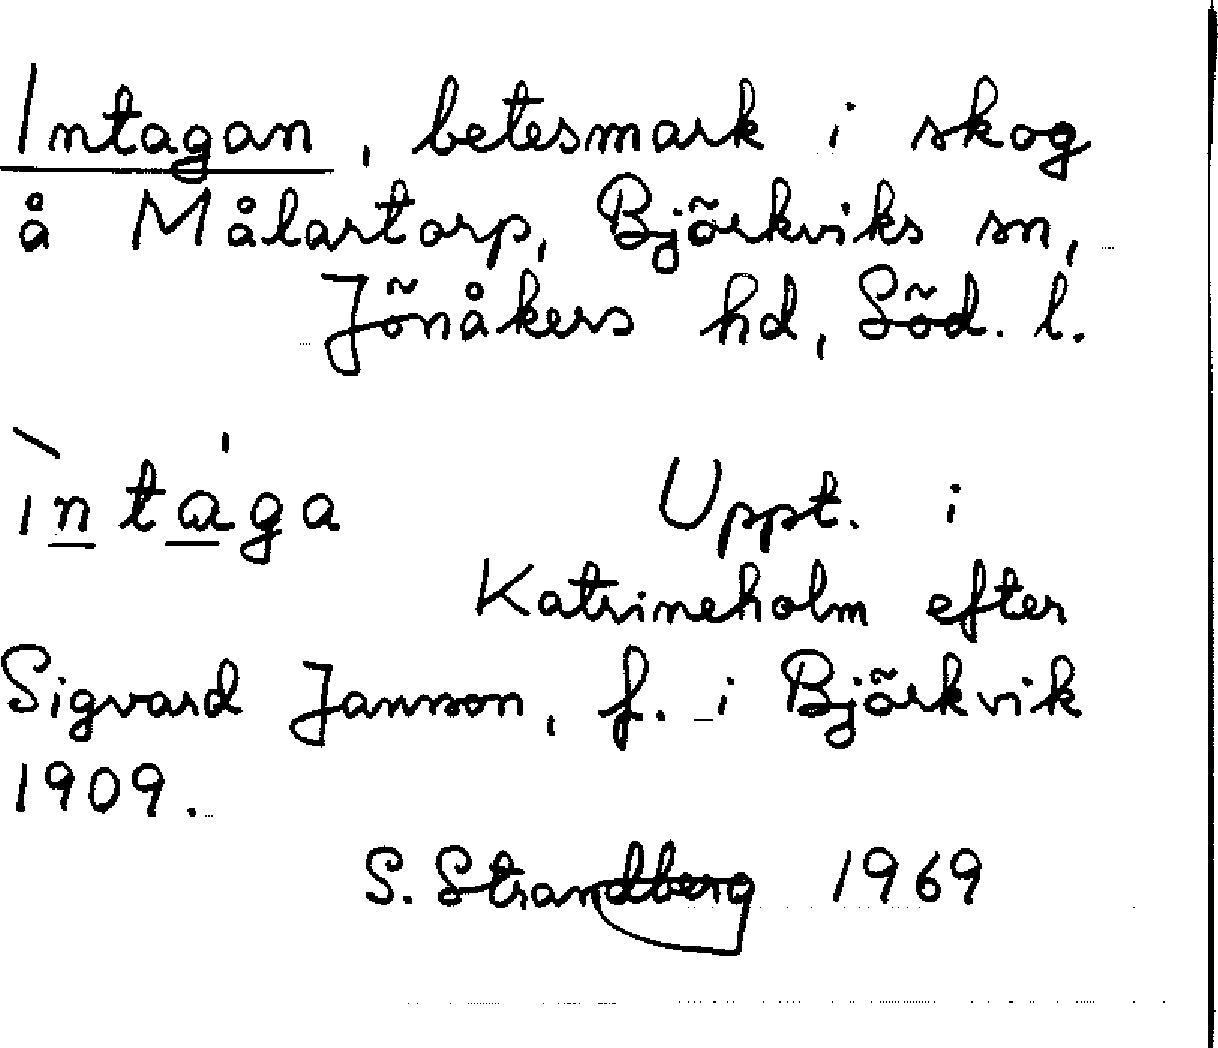 Intagan, betesmark i skog
å Målartorp, Björkviks sn,
Jönåkers hd, Söd. l.
ìntága Uppt. i
Katrineholm efter
Sigvard Janson, f. i Björkvik
1909.
S. Strandberg 1969